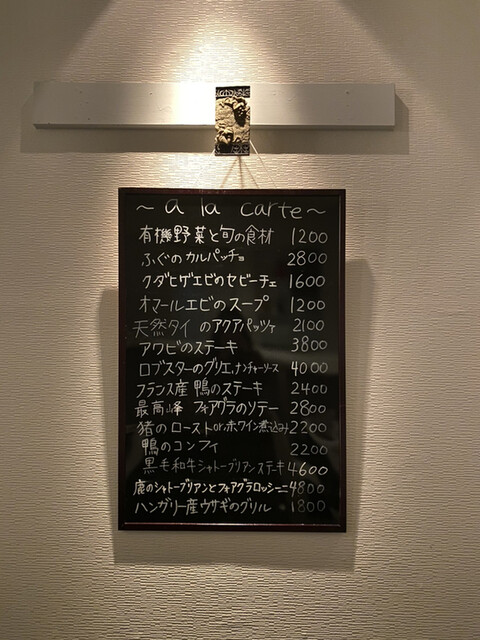 ～a la carte～
有機野菜と旬の食材 1200
ふぐのカルパッチョ 2800
クダヒゲエビのセビーチェ 1600
オマールエビのスープ 1200
天然タイのアクアパッツァ 2100
アワビのステーキ 3800
ロブスターのグリエ,ナンチャーソース 4000
フランス産 鴨のステーキ 2400
最高峰 フォアグラのソテー 2800
猪のロースト or.赤ワイン煮込み 2200
鴨のコンフィ 2200
黒毛和牛シャトーブリアンステーキ 4600
鹿のシャトーブリアンとフォアグラロッシーニ 4800
ハンガリー産ウサギのグリル 1800